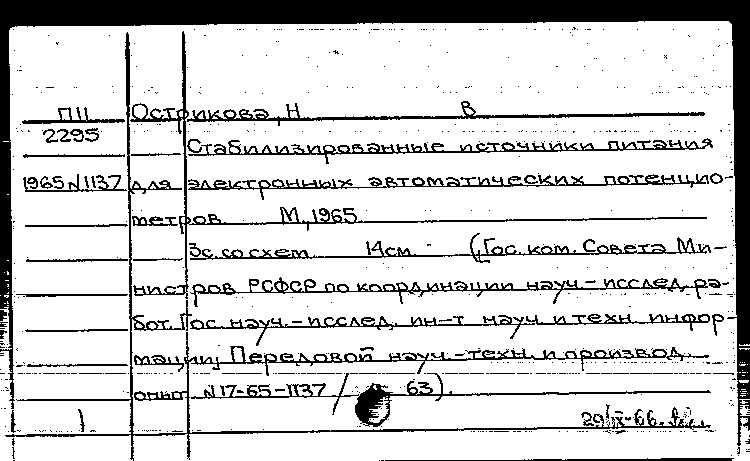 П11 Острикова, Н В
2295 Стабилизированные источники питания
1965 N1137 для электронных автоматических потенцио-
метров М, 1965
3с. со схем 14см. (Гос. ком. Совета Ми-
нистров РСФСР по координации науч.-исслед. ра-
бот. Гос. науч.-исслед. ин-т науч. и техн. инфор-
мации; Передовой науч.-техн. и производ.
опыт N17-65-1137 / 63).
1 29/IX-66.